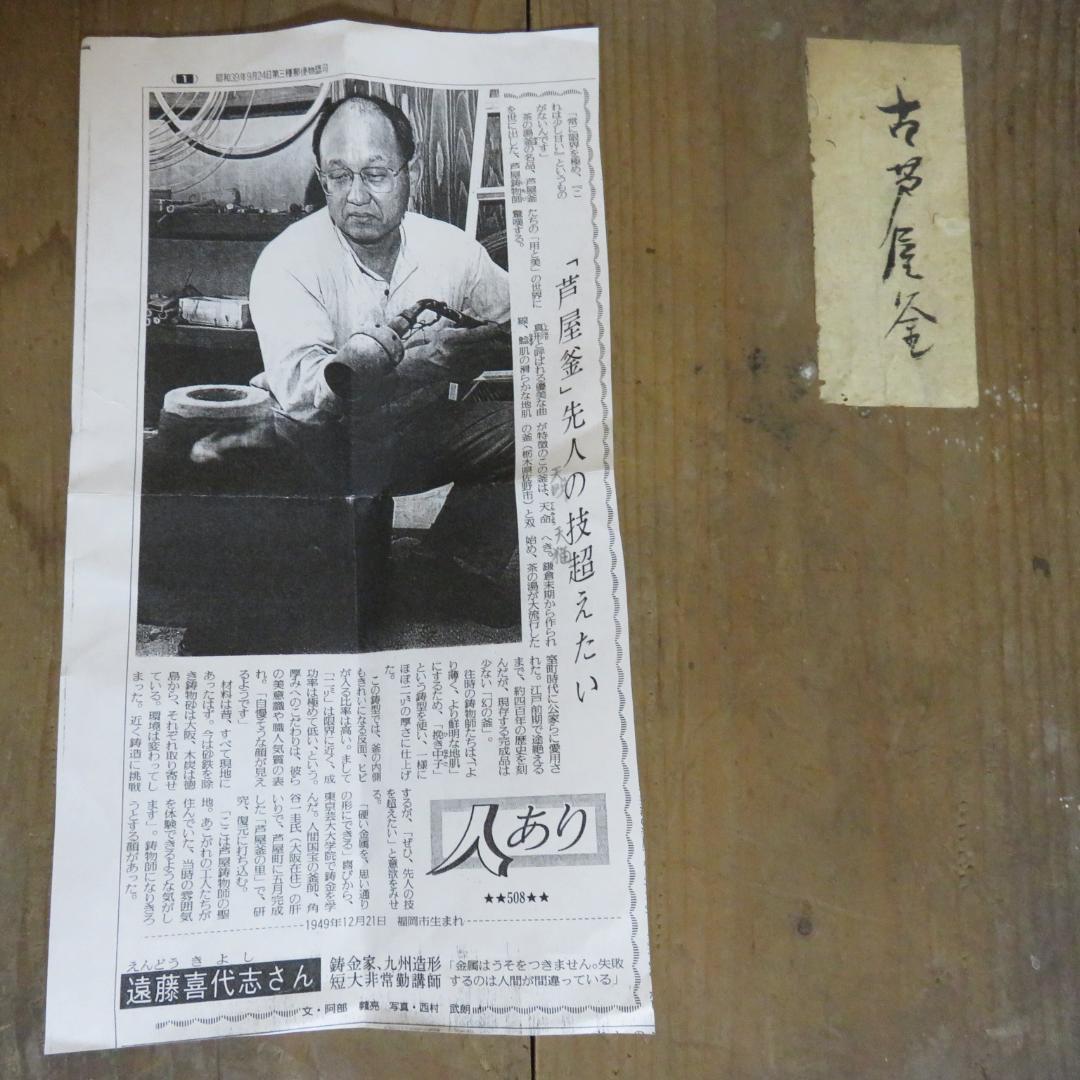 (1)
昭和39年9月24日第三種郵便物認可
「芦屋釜」先人の技超えたい
「常に限界を極め、『こ
れは少し甘い』というもの
がないんです」
茶の湯釜の名品、芦屋釜
を世に出した、芦屋鋳物師
たちの「用と美」の世界に
驚嘆する。
真形と呼ばれる優美な曲
線、鯰肌の滑らかな地肌
が特徴のこの釜は、天命
の釜(栃木県佐野市)と双
へき。鎌倉末期から作られ
始め、茶の湯が大流行した
天明
天猫
室町時代に公家らに愛用さ
れた。江戸前期で途絶える
まで、約四百年の歴史を刻
んだが、現存する完成品は
少ない「幻の釜」。
往時の鋳物師たちは、「よ
り薄く、より鮮明な地肌」
にするため、「挽き中子」
という鋳型を使い、一様に
ほぼ二㍉の厚さに仕上げ
た。
この鋳型では、釜の内側
もきれいになる反面、ヒビ
が入る比率は高い。まして
「二㍉」は限界に近く、成
功率は極めて低い、という。
厚みへのこだわりは、彼ら
の美意識や職人気質の表
れ。「自慢そうな顔が見え
るようです」
材料は昔、すべて現地に
あったはず。今は砂鉄を除
き鋳物砂は大阪、木炭は徳
島から、それぞれ取り寄せ
ている。環境は変わってし
まった。近く鋳造に挑戦
するが、「ぜひ、先人の技
を超えたい」と意欲をみせ
る。
「硬い金属を、思い通り
の形にできる」喜びから、
東京芸大大学院で鋳金を学
んだ。人間国宝の釜師、角
谷一圭氏(大阪在住)の肝
いりで、芦屋町に五月完成
した「芦屋釜の里」で、研
究、復元に打ち込む。
「ここは芦屋鋳物師の聖
地。あこがれの工人たちが
住んでいた、当時の雰囲気
を体験できるような気がし
ます」。鋳物師になりきろ
うとする顔があった。
人あり
★★508★★
1949年12月21日 福岡市生まれ
えんどうきよし
遠藤喜代志さん
鋳金家、九州造形
短大非常勤講師
「金属はうそをつきません。失敗
するのは人間が間違っている」
文・阿部 亮 写真・西村 武朗
古芦屋釜